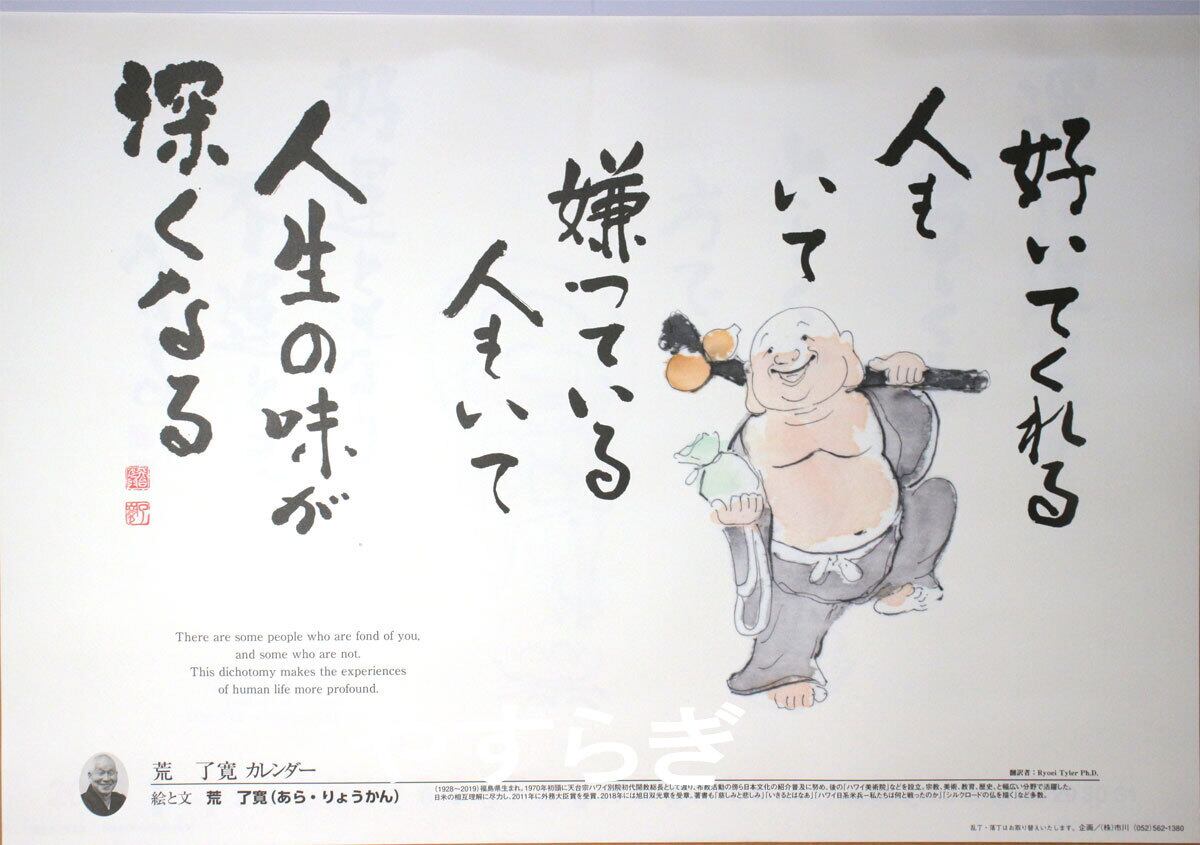 好いてくれる
人も
いて
嫌っている
人もいて
人生の味が
深くなる
There are some people who are fond of you,
and some who are not.
This dichotomy makes the experiences
of human life more profound.
やすらぎ
荒 了寛 カレンダー
絵と文 荒 了寛(あら・りょうかん)
翻訳者:Ryoei Tyler Ph.D.
(1928〜2019)福島県生まれ。1970年初頭に天台宗ハワイ別院初代開教総長として渡り、布教活動の傍ら日本文化の紹介普及に努め、後の「ハワイ美術院」などを設立。宗教、美術、教育、歴史、と幅広い分野で活躍した。
日米の相互理解に尽力し、2011年に外務大臣賞を受賞。2018年には旭日双光章を受章。著書も「慈しみと悲しみ」「いきるとはなあ」「ハワイ日系米兵―私たちは何と戦ったのか」「シルクロードの仏を描く」など多数。
乱丁・落丁はお取り替えいたします。企画/(株)市川 (052)562-1380